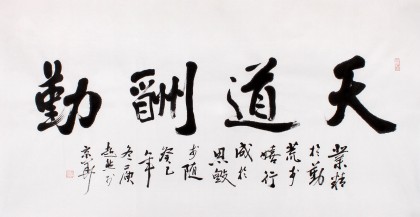 天道酬勤
業精
於勤
荒於
嬉行
成於
思毀
於隨
癸巳
年
冬
京華